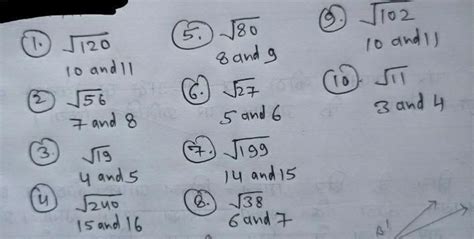 1. √120
10 and 11
2 √56
7 and 8
3. √19
4 and 5
4 √240
15 and 16
5. √80
8 and 9
6. √27
5 and 6
7. √199
14 and 15
8. √38
6 and 7
9. √102
10 and 11
10 √11
3 and 4